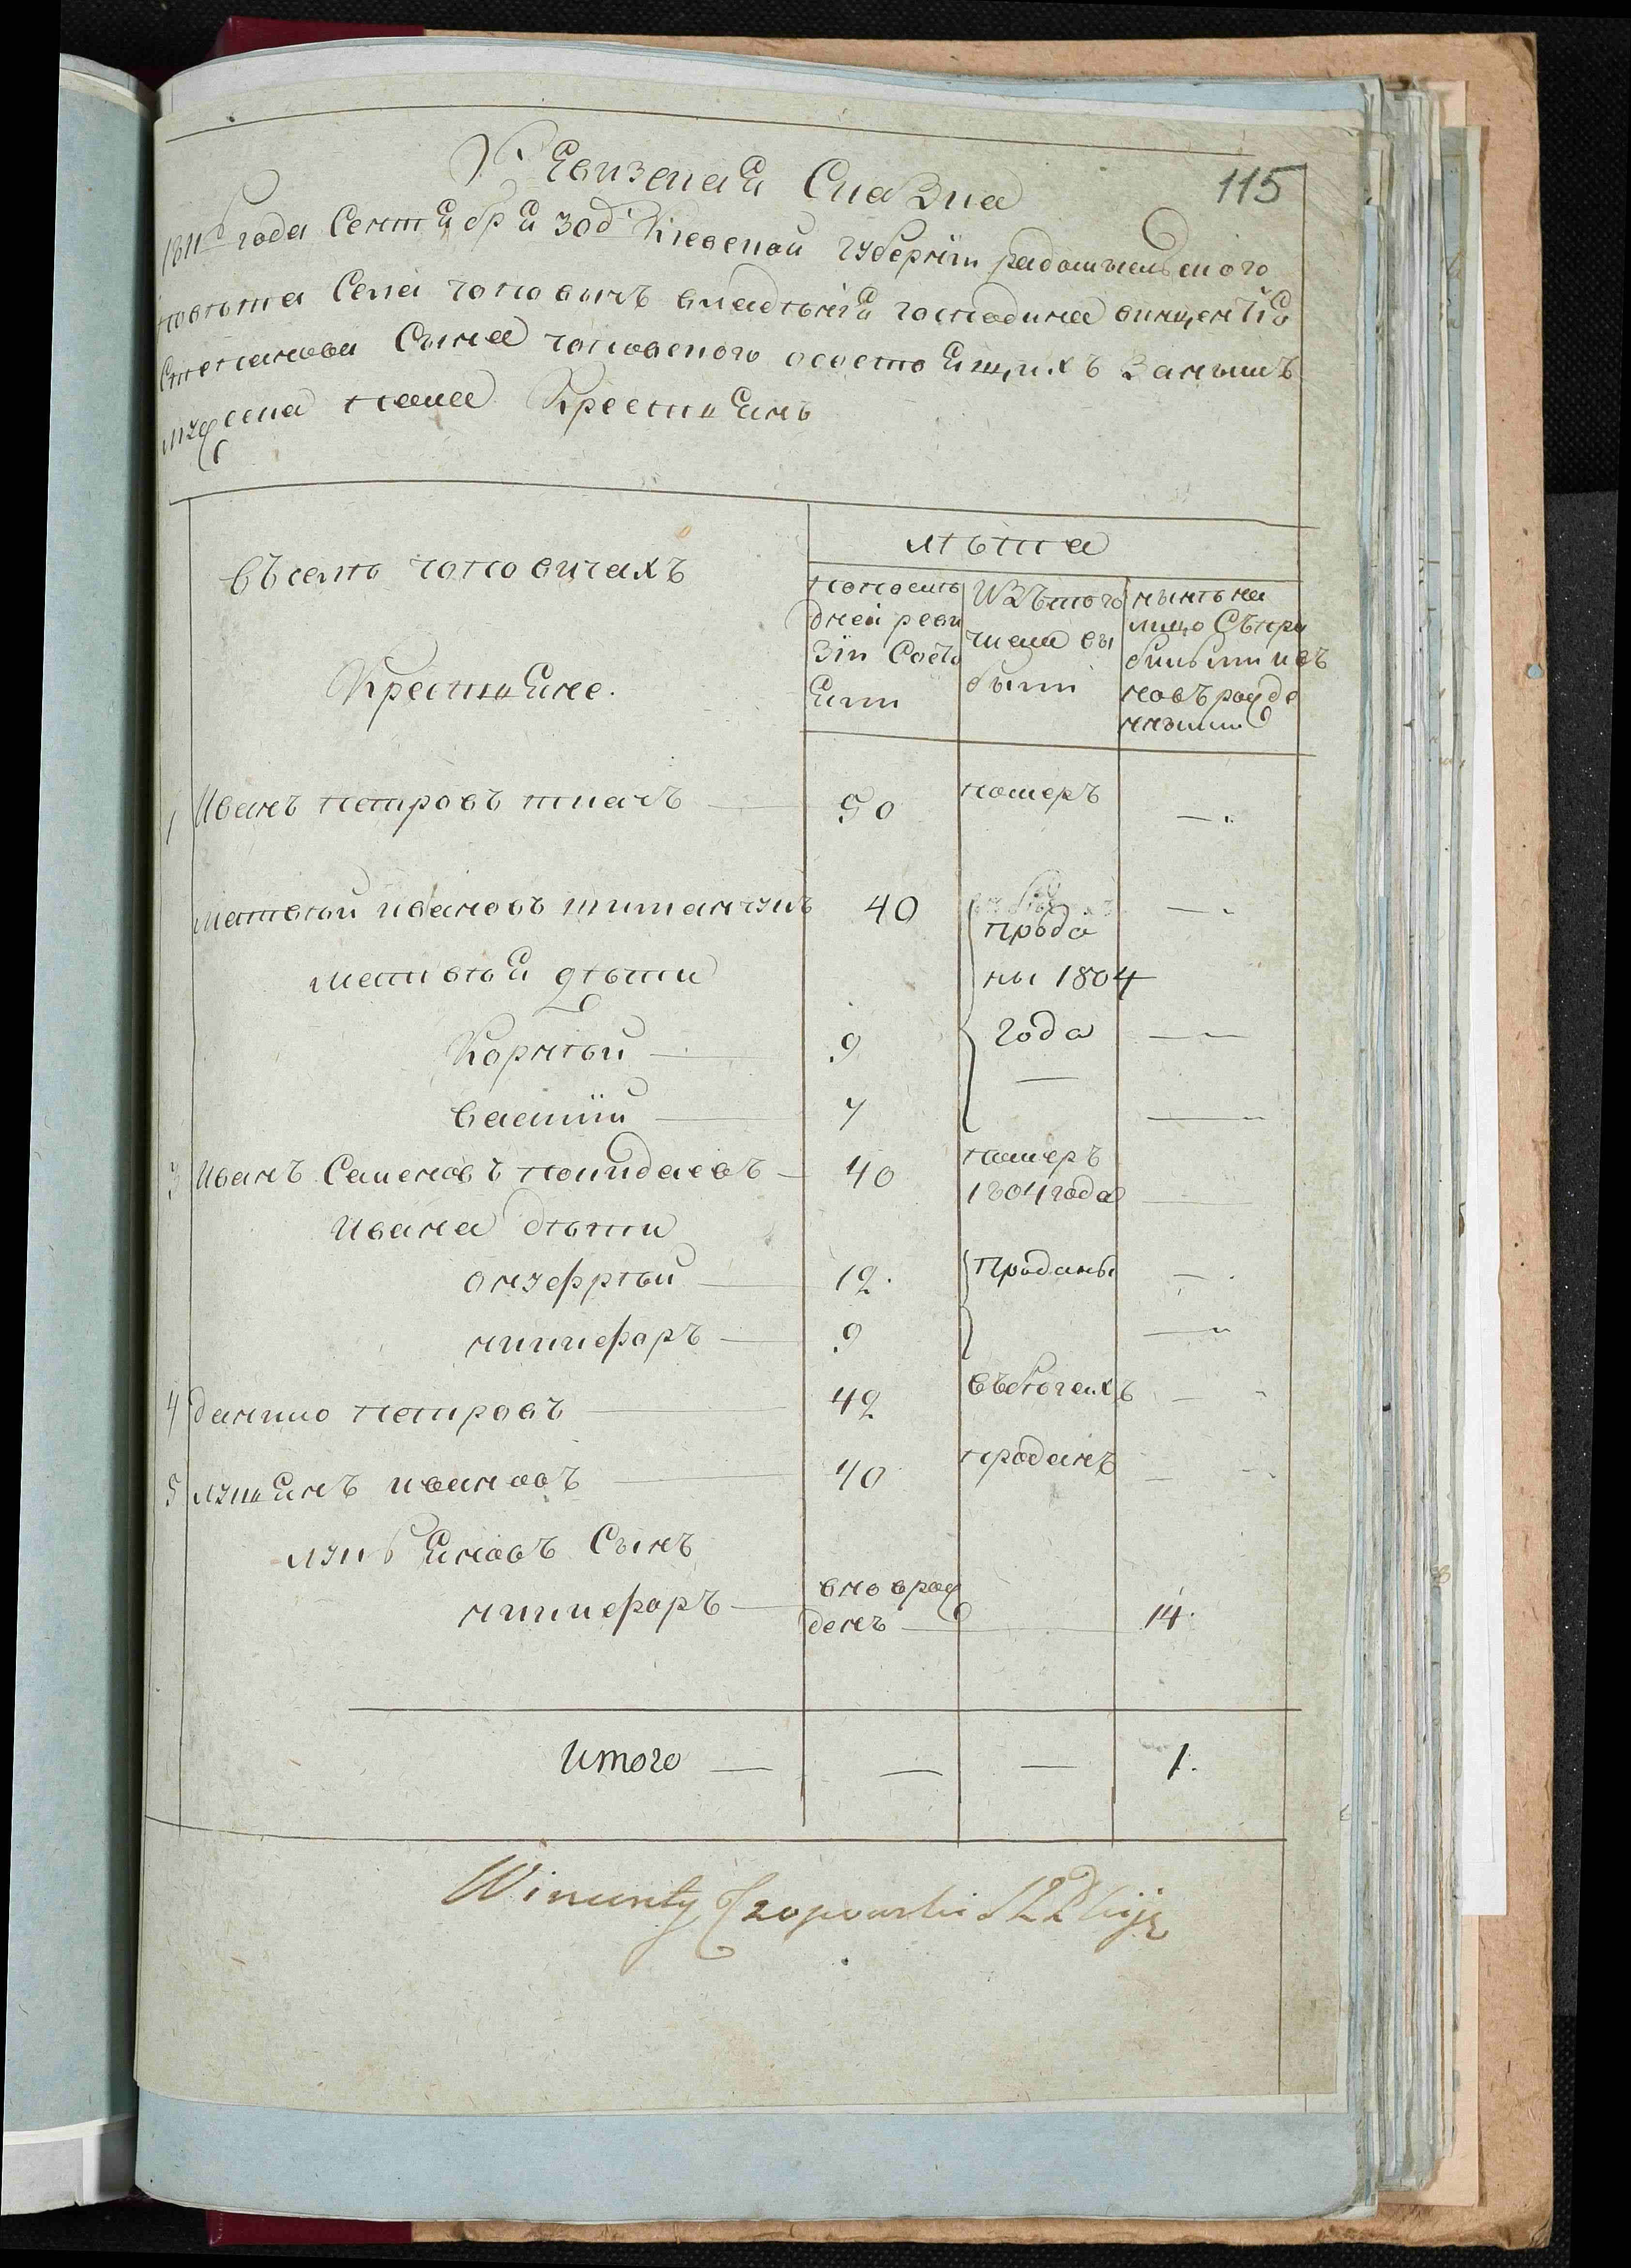 115
Ревизская Сказка
1811 года Сентября 30д Киевской губернiи радомысльского
повѣта Села чоповичъ владѣнiя господина винцентiя
Степанова Сына чоповского осостоящихъ Занымъ
мужеска пола Крестянъ
лѣта
Въселѣ чоповичахъ
Крестяне.
попослѣ
дней реви
зiи Состо
яли
ИЗЪтого
числа вы
были
нынѣ на
лицо Съпри
былыми ивъ
новъ рожде
нными
1 Иванъ петровъ ткачъ — 50 померъ —
матвѣй ивановъ 40 —
Прода
ны 1804
года
матвѣя дѣти
Корнѣй — 9 —
василiй — 7 —
3 Иванъ Семеновъ — 40 померъ
1804 года —
ивана дѣти
онуфрѣй — 12. Проданы —
никифоръ — 9 —
4 данило петровъ — 42 въбѣгахъ —
5 лукянъ ивановъ — 40 проданъ —
лукянновъ Сынъ
никифоръ — вновь рож
денъ — 14.
Итого — — — 1.
Wincenty Czopowski